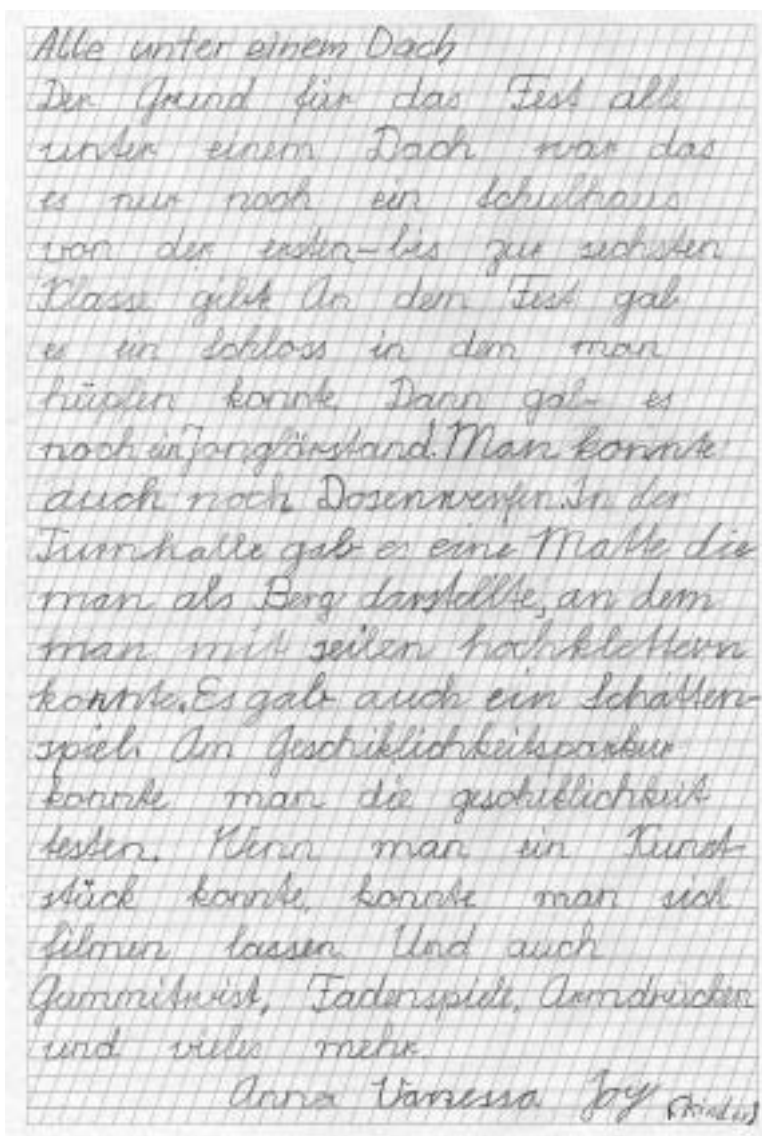 Alle unter einem Dach
Der Grund für das Fest alle
unter einem Dach war das
es nur noch ein Schulhaus
von der ersten-bis zur sechsten
Klasse gibt An dem Fest gab
es ein Schloss in dem man
hüpfen konnte. Dann gab es
noch ein Jonglörstand. Man konnte
auch noch Dosenwerfen. In der
Turnhalle gab es eine Matte die
man als Berg darstellte, an dem
man mit seilen hochklettern
konnte. Es gab auch ein Schatten-
spiel. Am Geschiklichkeitsparkur
konnte man die geschiklichkeit
testen. Wenn man ein Kunst-
stück konnte, konnte man sich
filmen lassen. Und auch
Gummitwist, Fadenspiele, Armdrücken
und vieles mehr.
Anna Vanessa Joy